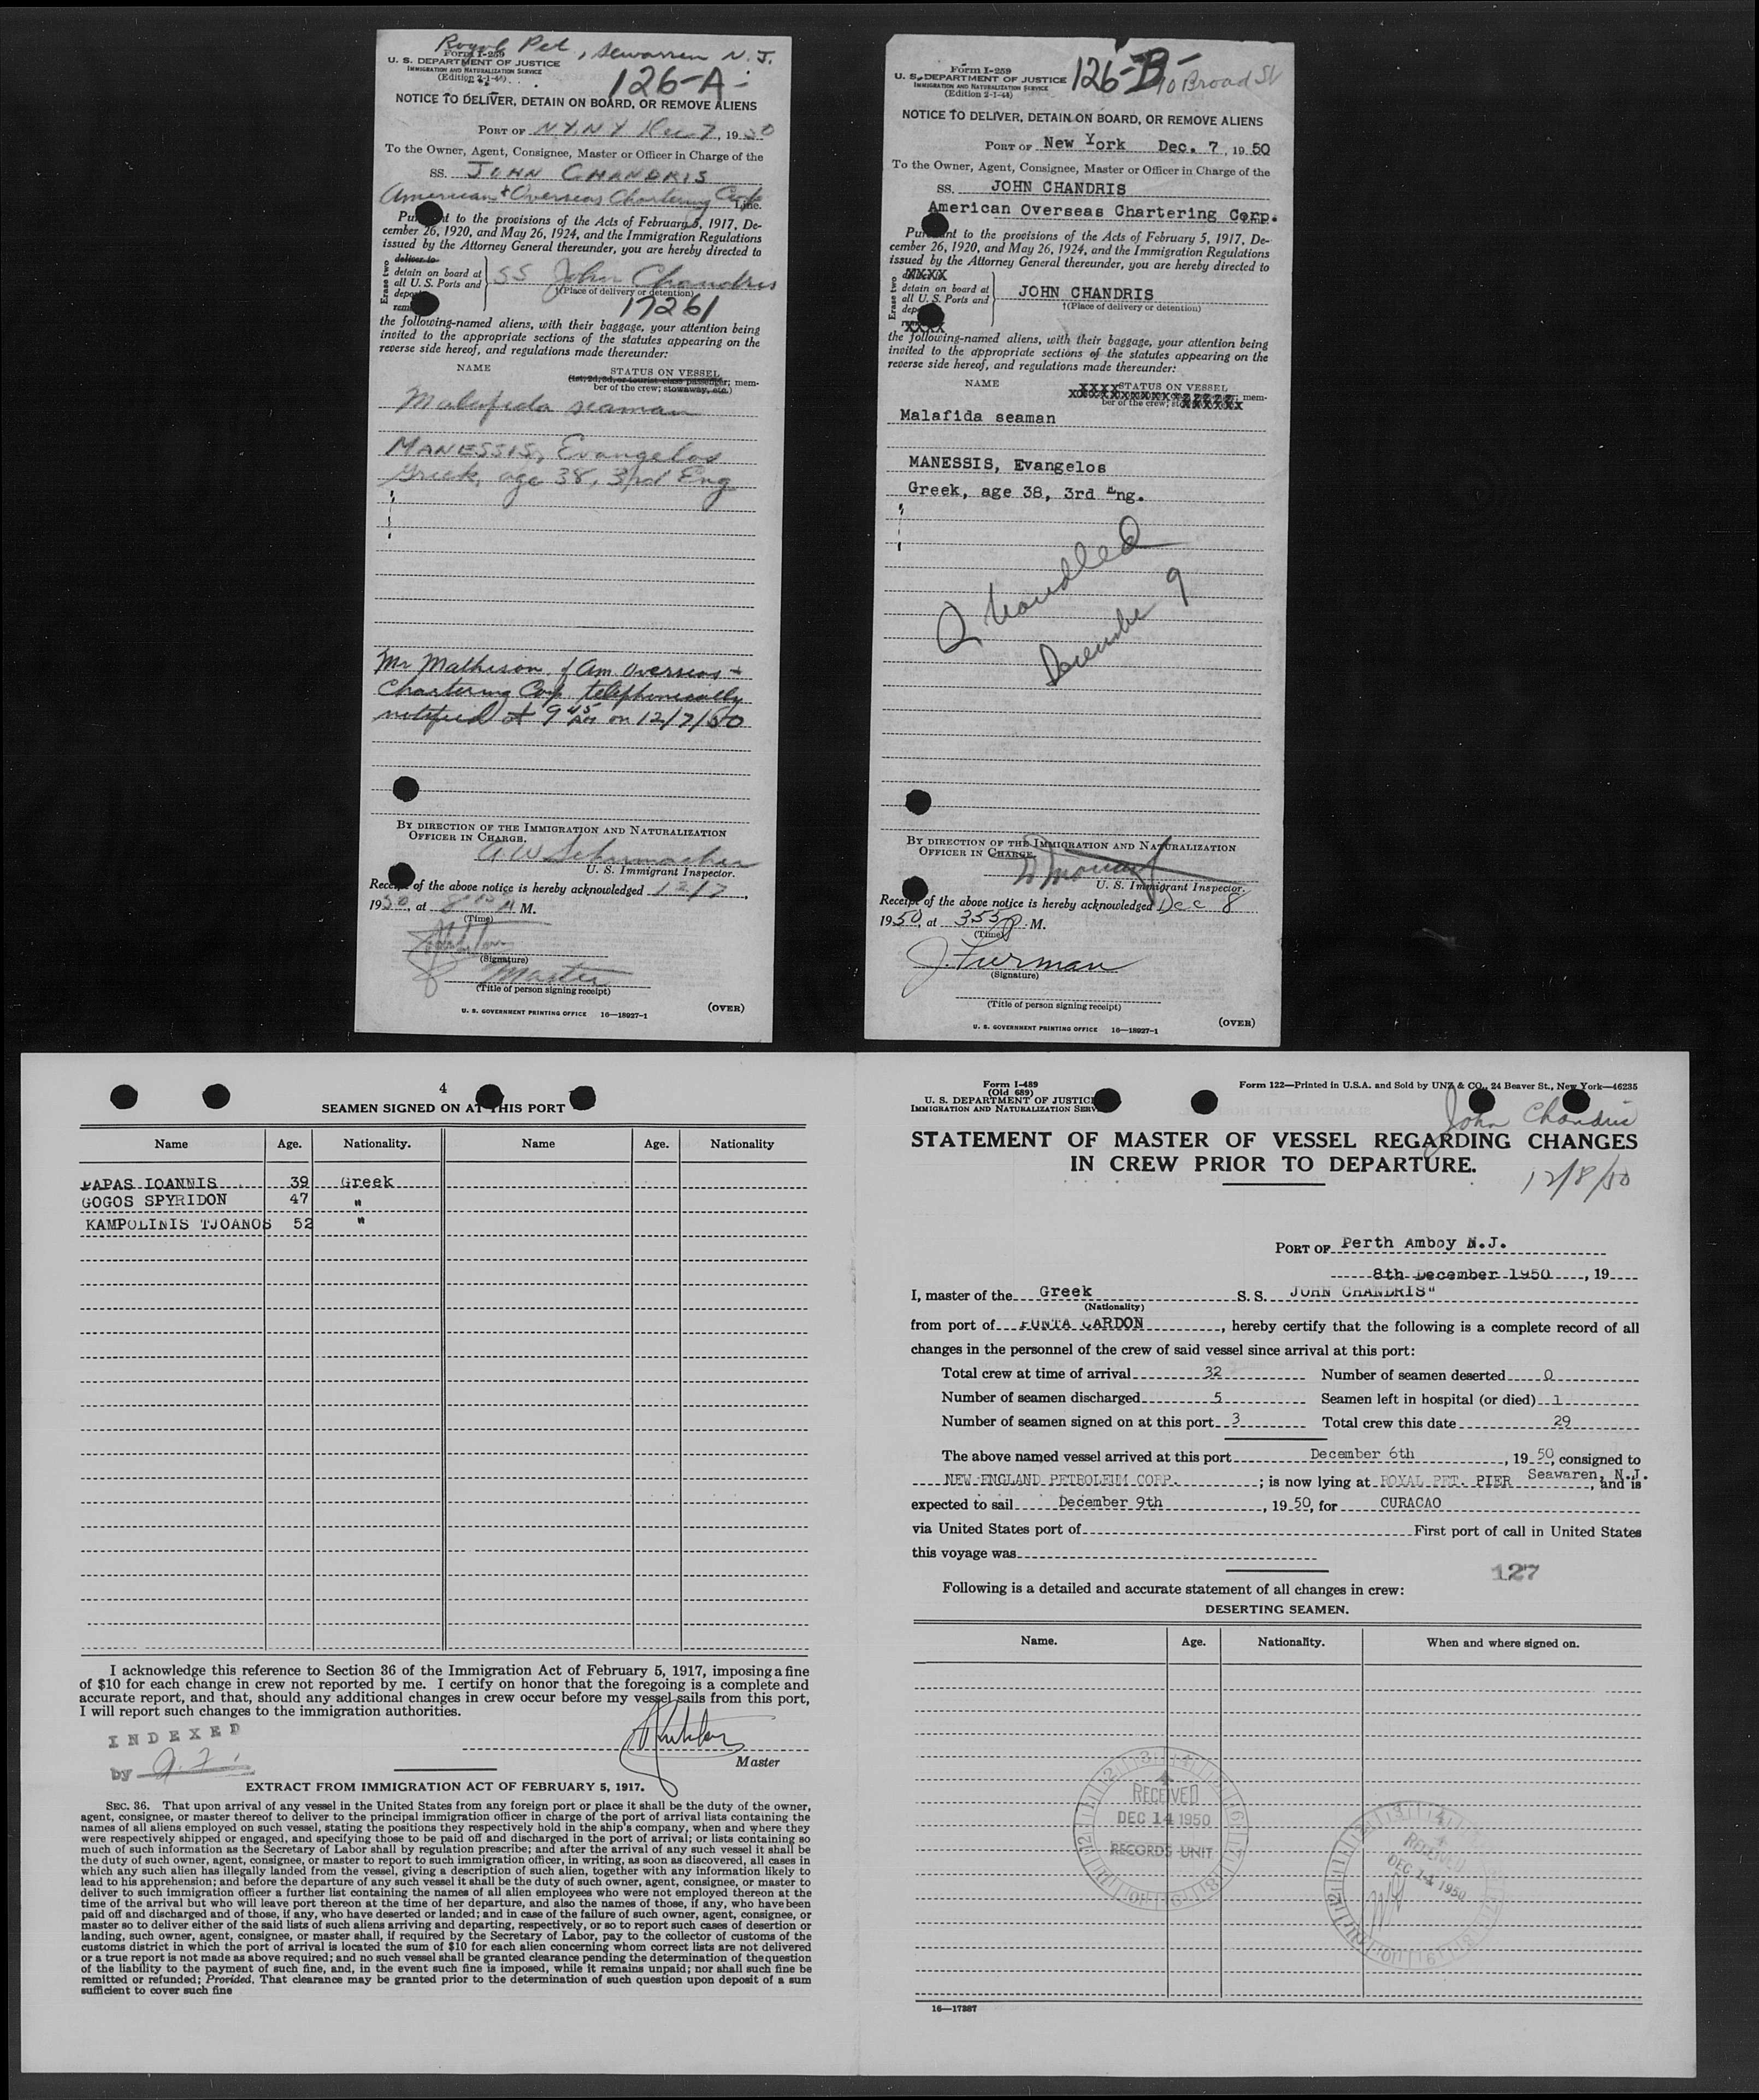 Royal Pet, Sewarren N. J.
Form I-259
U. S. DEPARTMENT OF JUSTICE
IMMIGRATION AND NATURALIZATION SERVICE
(Edition 2-1-44)
126-A-
NOTICE TO DELIVER, DETAIN ON BOARD, OR REMOVE ALIENS
PORT OF N.Y.N.Y Dec. 7, 1950
To the Owner, Agent, Consignee, Master or Officer in Charge of the
SS. JOHN CHANDRIS
American + Overseas Chartering Corp Line.
Pursuant to the provisions of the Acts of February 5, 1917, De-
cember 26, 1920, and May 26, 1924, and the Immigration Regulations
issued by the Attorney General thereunder, you are hereby directed to
Erase two
deliver to
detain on board at
all U. S. Ports and
SS John Chandris
†(Place of delivery or detention)
17261
the following-named aliens, with their baggage, your attention being
invited to the appropriate sections of the statutes appearing on the
reverse side hereof, and regulations made thereunder:
NAME STATUS ON VESSEL
(1st, 2d, 3d, or tourist class passenger; mem-
ber of the crew; stowaway, etc.)
Malafida seaman
MANESSIS, Evangelos
Greek, age 38, 3rd Eng
Mr Mathison of Am. Overseas +
Chartering Corp. telephonically
notified at 9 45 AM on 12/7/50
BY DIRECTION OF THE IMMIGRATION AND NATURALIZATION
OFFICER IN CHARGE.
A. W. Schumacher
U. S. Immigrant Inspector.
Receipt of the above notice is hereby acknowledged 12/7,
1950, at A M.
(Time)
(Signature)
Master
(Title of person signing receipt)
(OVER)
U. S. GOVERNMENT PRINTING OFFICE 16—18927-1
Form I-259
U. S. DEPARTMENT OF JUSTICE
IMMIGRATION AND NATURALIZATION SERVICE
(Edition 2-1-44)
126-B- 10 Broad St
NOTICE TO DELIVER, DETAIN ON BOARD, OR REMOVE ALIENS
PORT OF New York Dec. 7, 1950
To the Owner, Agent, Consignee, Master or Officer in Charge of the
SS. JOHN CHANDRIS
American Overseas Chartering Corp.
Pursuant to the provisions of the Acts of February 5, 1917, De-
cember 26, 1920, and May 26, 1924, and the Immigration Regulations
issued by the Attorney General thereunder, you are hereby directed to
Erase two
XXXX
detain on board at
all U. S. Ports and
XXXX
JOHN CHANDRIS
†(Place of delivery or detention)
the following-named aliens, with their baggage, your attention being
invited to the appropriate sections of the statutes appearing on the
reverse side hereof, and regulations made thereunder:
NAME STATUS ON VESSEL
mem-
ber of the crew;
Malafida seaman
MANESSIS, Evangelos
Greek, age 38, 3rd Eng.
handled
December 9
BY DIRECTION OF THE IMMIGRATION AND NATURALIZATION
OFFICER IN CHARGE.
U. S. Immigrant Inspector.
Receipt of the above notice is hereby acknowledged Dec 8
1950, at 355 P. M.
(Time)
J. Furman
(Signature)
(Title of person signing receipt)
(OVER)
U. S. GOVERNMENT PRINTING OFFICE 16—18927-1
4
SEAMEN SIGNED ON AT THIS PORT
Name Age. Nationality. Name Age. Nationality
PAPAS IOANNIS 39 Greek
GOGOS SPYRIDON 47 "
KAMPOLINIS TJOANOS 52 "
I acknowledge this reference to Section 36 of the Immigration Act of February 5, 1917, imposing a fine
of $10 for each change in crew not reported by me. I certify on honor that the foregoing is a complete and
accurate report, and that, should any additional changes in crew occur before my vessel sails from this port,
I will report such changes to the immigration authorities.
INDEXED
by
Master
EXTRACT FROM IMMIGRATION ACT OF FEBRUARY 5, 1917.
SEC. 36. That upon arrival of any vessel in the United States from any foreign port or place it shall be the duty of the owner,
agent, consignee, or master thereof to deliver to the principal immigration officer in charge of the port of arrival lists containing the
names of all aliens employed on such vessel, stating the positions they respectively hold in the ship's company, when and where they
were respectively shipped or engaged, and specifying those to be paid off and discharged in the port of arrival; or lists containing so
much of such information as the Secretary of Labor shall by regulation prescribe; and after the arrival of any such vessel it shall be
the duty of such owner, agent, consignee, or master to report to such immigration officer, in writing, as soon as discovered, all cases in
which any such alien has illegally landed from the vessel, giving a description of such alien, together with any information likely to
lead to his apprehension; and before the departure of any such vessel it shall be the duty of such owner, agent, consignee, or master to
deliver to such immigration officer a further list containing the names of all alien employees who were not employed thereon at the
time of the arrival but who will leave port thereon at the time of her departure, and also the names of those, if any, who have been
paid off and discharged and of those, if any, who have deserted or landed; and in case of the failure of such owner, agent, consignee, or
master so to deliver either of the said lists of such aliens arriving and departing, respectively, or so to report such cases of desertion or
landing, such owner, agent, consignee, or master shall, if required by the Secretary of Labor, pay to the collector of customs of the
customs district in which the port of arrival is located the sum of $10 for each alien concerning whom correct lists are not delivered
or a true report is not made as above required; and no such vessel shall be granted clearance pending the determination of the question
of the liability to the payment of such fine, and, in the event such fine is imposed, while it remains unpaid; nor shall such fine be
remitted or refunded; Provided, That clearance may be granted prior to the determination of such question upon deposit of a sum
sufficient to cover such fine
Form I-489
(Old 689)
U. S. DEPARTMENT OF JUSTICE
IMMIGRATION AND NATURALIZATION SERVICE
Form 122—Printed in U.S.A. and Sold by UNZ & CO., 24 Beaver St., New York—46235
John Chandris
STATEMENT OF MASTER OF VESSEL REGARDING CHANGES
IN CREW PRIOR TO DEPARTURE.
12/8/50
PORT OF Perth Amboy N.J.
8th December 1950, 19
I, master of the Greek S. S. JOHN CHANDRIS"
(Nationality)
from port of PUNTA CARDON, hereby certify that the following is a complete record of all
changes in the personnel of the crew of said vessel since arrival at this port:
Total crew at time of arrival 32 Number of seamen deserted 0
Number of seamen discharged 5 Seamen left in hospital (or died) 1
Number of seamen signed on at this port 3 Total crew this date 29
The above named vessel arrived at this port December 6th, 1950, consigned to
NEW ENGLAND PETROLEUM CORP.; is now lying at ROYAL PET. PIER Seawaren, N.J., and is
expected to sail December 9th, 1950, for CURACAO
via United States port of First port of call in United States
this voyage was
127
Following is a detailed and accurate statement of all changes in crew:
DESERTING SEAMEN.
Name. Age. Nationality. When and where signed on.
RECEIVED
DEC 14 1950
RECORDS UNIT
RECEIVED
DEC 14 1950
16—17387